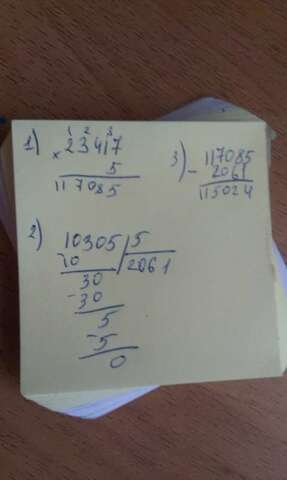 1) 1 2 3
× 23417
5
117085
3) - 117085
2061
115024
2) 10305 | 5
- 10 | 2061
30
- 30
5
- 5
0